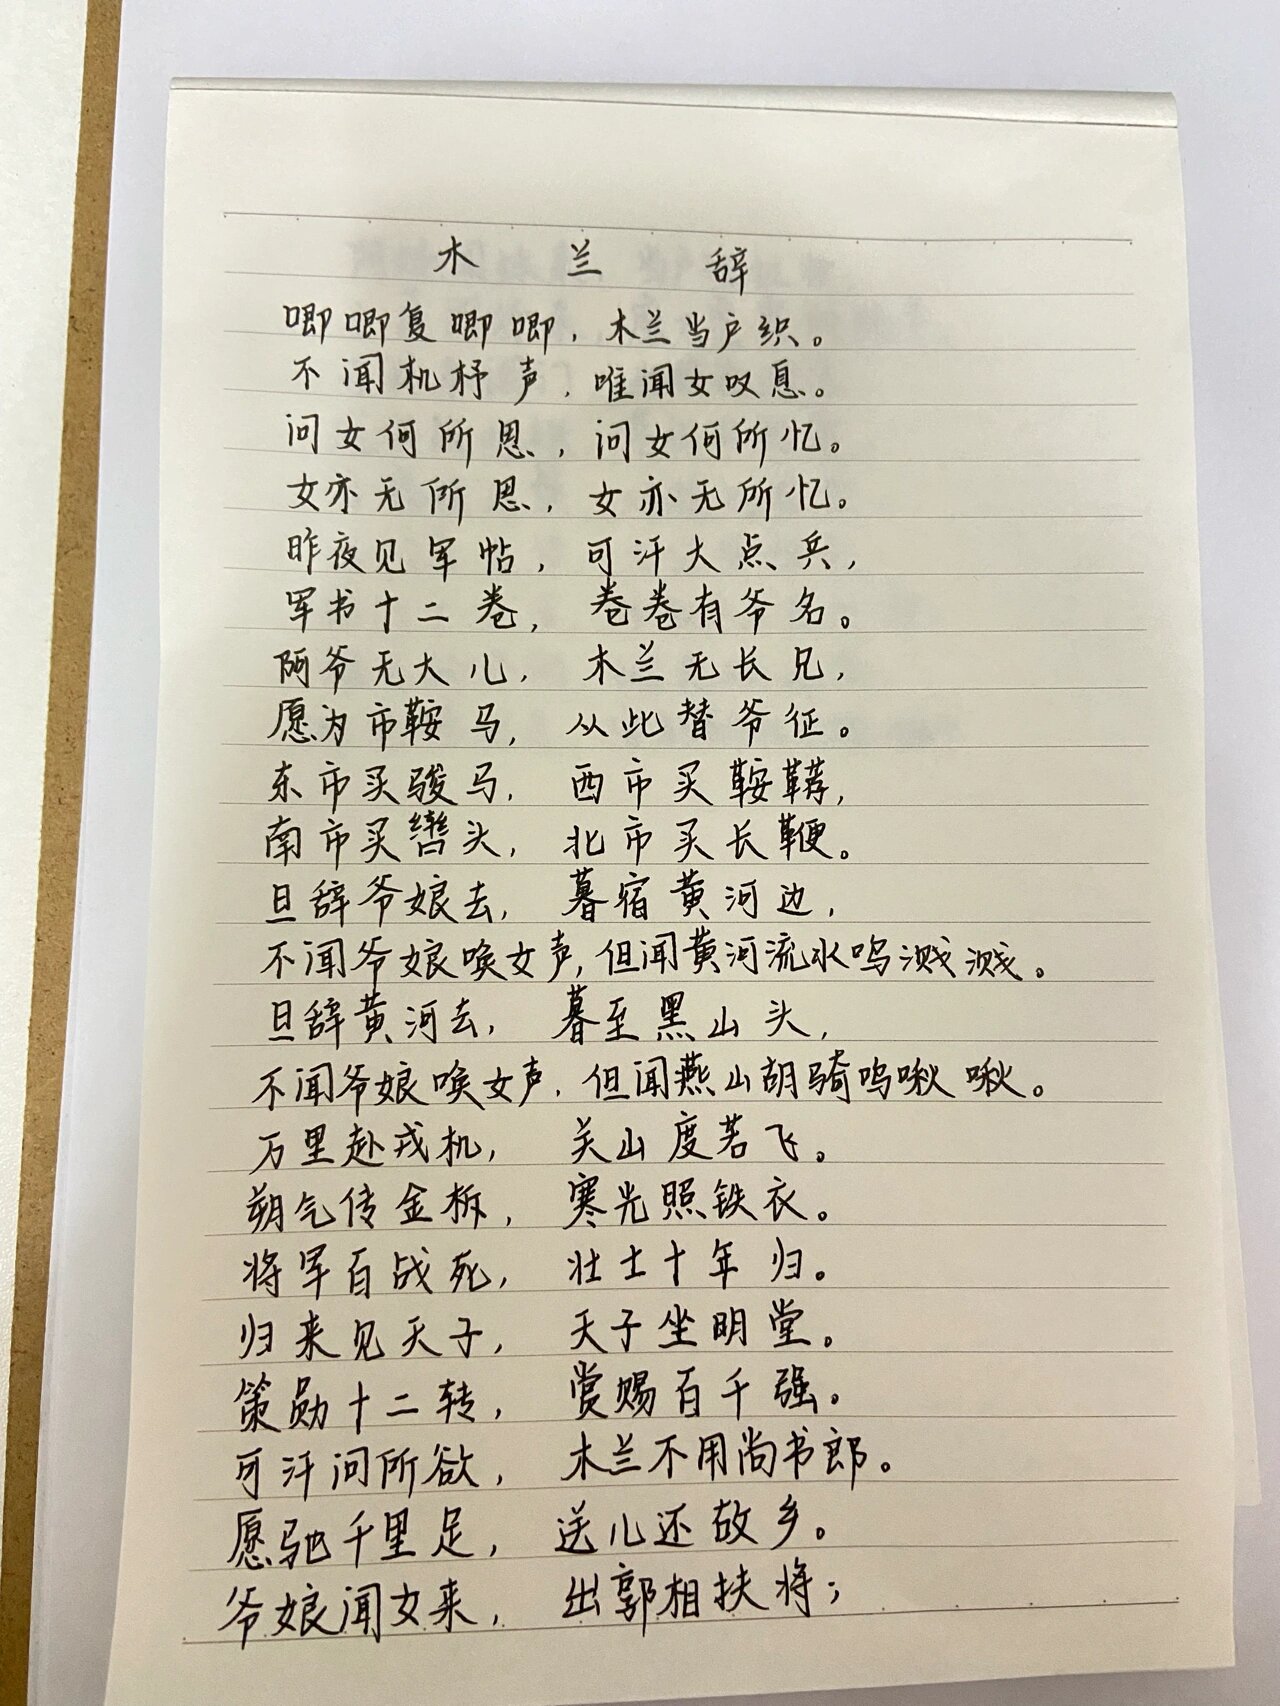 木 兰 辞
唧唧复唧唧，木兰当户织。
不闻机杼声，唯闻女叹息。
问女何所思，问女何所忆。
女亦无所思，女亦无所忆。
昨夜见军帖，可汗大点兵，
军书十二卷，卷卷有爷名。
阿爷无大儿，木兰无长兄，
愿为市鞍马，从此替爷征。
东市买骏马，西市买鞍鞯，
南市买辔头，北市买长鞭。
旦辞爷娘去，暮宿黄河边，
不闻爷娘唤女声，但闻黄河流水鸣溅溅。
旦辞黄河去，暮至黑山头，
不闻爷娘唤女声，但闻燕山胡骑鸣啾啾。
万里赴戎机，关山度若飞。
朔气传金柝，寒光照铁衣。
将军百战死，壮士十年归。
归来见天子，天子坐明堂。
策勋十二转，赏赐百千强。
可汗问所欲，木兰不用尚书郎。
愿驰千里足，送儿还故乡。
爷娘闻女来，出郭相扶将；